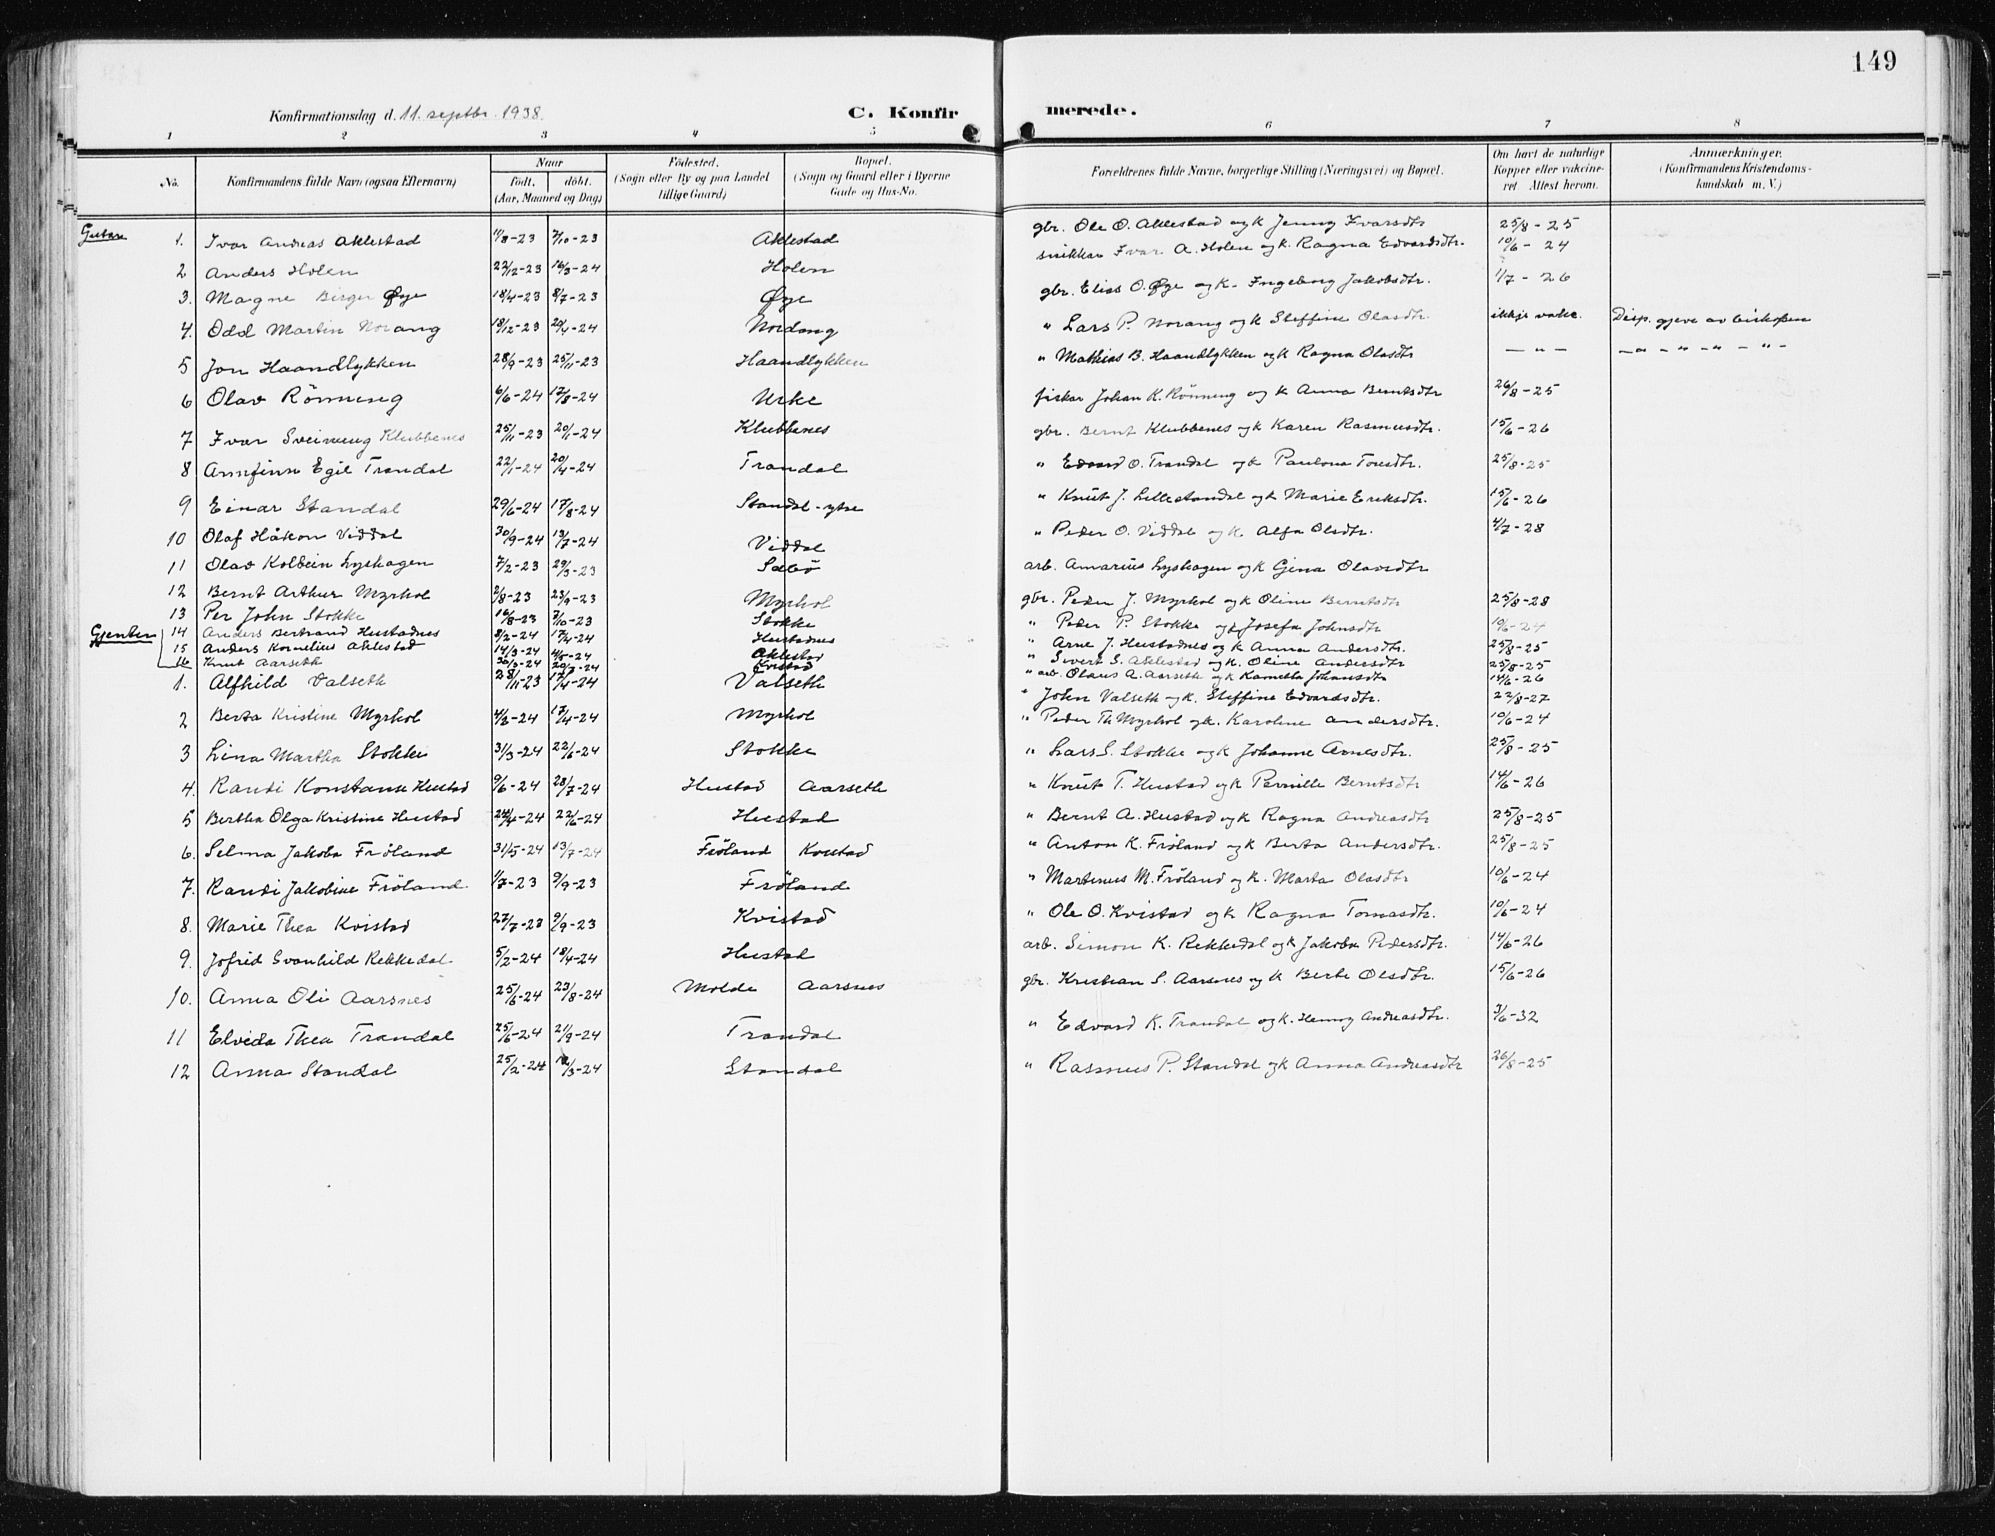 149
Konfirmationsdag d. 11. septbr. 1938.
C. Konfirmerede.
1 2 3 4 5 6 7 8
No. Konfirmandens fulde Navn (ogsaa Efternavn) Naar født, døbt. (Aar, Maaned og Dag) Fødested. (Sogn eller By og paa Landet tillige Gaard) Bopæl. (Sogn og Gaard eller i Byerne Gade og Hus-No. Forældrenes fulde Navne, borgerlige Stilling (Næringsvei) og Bopæl. Om havt de naturlige Kopper eller vakcineret Attest herom. Anmærkninger. (Konfirmandens Kristendomskundskab m. V.)
Gutar
1. Ivar Andreas Aklestad 11/8-23 7/10-23 Aklestad gbr. Ole O. Aklestad og k Jenny Ivarsdtr 25/8-25
2 Anders Holen 22/12-23 16/3-24 Holen snikkar Ivar A. Holen og k. Ragna Edvardsdtr. 10/6-24
3. Magne Birger Øye 18/4-23 8/7-23 Øye gbr. Elias O. Øye og k. Ingeborg Jakobsdtr. 1/7-26
4. Odd Martin Norang 18/12-23 20/4-24 Nordang " Lars P. Norang og k Steffine Olasdtr. ikkje vaks. Disp. gjeve av biskopen
5 Jon Haandlykken 28/9-23 25/11-23 Haandlykken " Mathias B. Haandlykken og k Ragna Olasdtr — " — — " — " — " — " —
6 Olav Rönning 6/6-24 17/8-24 Urke fiskar Johan K. Rönning og k Anna Berntsdtr 26/8-25
7 Ivar Sveinung Klubbenes 25/11-23 20/1-24 Klubbenes gbr. Bernt Klubbenes og k Karen Rasmusdtr. 15/6-26
8 Arnfinn Egil Trandal 22/1-24 20/4-24 Trandal " Edvard O. Trandal og k Paulona Tomsdtr. 25/8-25
9 Einar Standal 29/6-24 17/8-24 Standal-ytre " Knut J. Lillestandal og k Marie Eriksdtr. 15/6-26
10 Olaf Håkon Viddal 30/9-24 13/7-24 Viddal " Peder O. Viddal og k. Alfa Olsdtr. 4/7-28
11 Olav Kolbein Lyshagen 7/2-23 29/3-23 Sæbö arb. Amarius Lyshagen og k Gina Olavsdtr
12 Bernt Arthur Myrhol 2/8-23 23/9-23 Myrhol gbr. Peder J. Myrhol og k Oline Berntsdtr 25/8-28
13 Per John Stokke 16/8-23 7/10-23 Stokke " Peder P. Stokke og k Josefa Johnsdtr 10/6-24
14 Anders Bertrand Hustadnes 8/2-24 17/4-24 Hustadnes " Arne J. Hustadnes og k Anna Andersdtr. 25/8-25
15 Anders Kornelius Aklestad 14/3-24 4/5-24 Aklestad " Sivert S. Aklestad og k. Oline Andersdtr 25/8-25
16 Knut Aarseth 30/3-24 20/7-24 Kvistad " arb. Olaus A. Aarseth og k Kamella Johansdtr 14/6-26
Gjenter
1. Alfhild Valseth 28/11-23 17/4-24 Valseth " John Valseth og k. Steffine Edvardsdtr. 22/8-27
2 Berta Kristine Myrhol 4/2-24 17/4-24 Myrhol " Peder Th Myrhol og k. Karoline Andersdtr. 10/6-24
3 Lina Martha Stokke 31/3-24 22/6-24 Stokke " Lars S. Stokke og k Johanne Arnesdtr. 25/8-25
4. Randi Konstanse Hustad 9/6-24 28/7-24 Hustad Aarseth " Knut T. Hustad og k Pernille Berntsdtr 14/6-26
5 Bertha Olga Kristine Hustad 24/4-24 22/6-24 Hustad " Bernt A. Hustad og k Ragna Andreasdtr 25/8-25
6. Selma Jakoba Fröland 31/5-24 13/7-24 Fröland Kvistad " Anton K. Fröland og k Berta Andersdtr. 25/8-25
7. Randi Jakobine Fröland 1/7-23 9/9-23 Fröland " Martinus M. Fröland og k. Marta Olasdtr 10/6-24
8. Marie Thea Kvistad 27/7-23 9/9-23 Kvistad " Ole O. Kvistad og k Ragna Tomasdtr. 10/6-24
9. Jofrid Svanhild Rekkedal 5/2-24 18/4-24 Hustad arb. Simon K. Rekkedal og k Jakoba Pedersdtr. 14/6-26
10. Anna Oli Aarsnes 25/6-24 23/8-24 Molde Aarsnes gbr. Kristian S. Aarsnes og k Berte Olsdtr. 15/6-26
11 Elvida Thea Trandal 25/6-24 21/9-24 Trandal " Edvard K. Trandal og k. Henny Andreasdtr. 3/6-32
12 Anna Standal 25/2-24 /3-24 Standal " Rasmus P. Standal og k Anna Andreasdtr 26/8-25